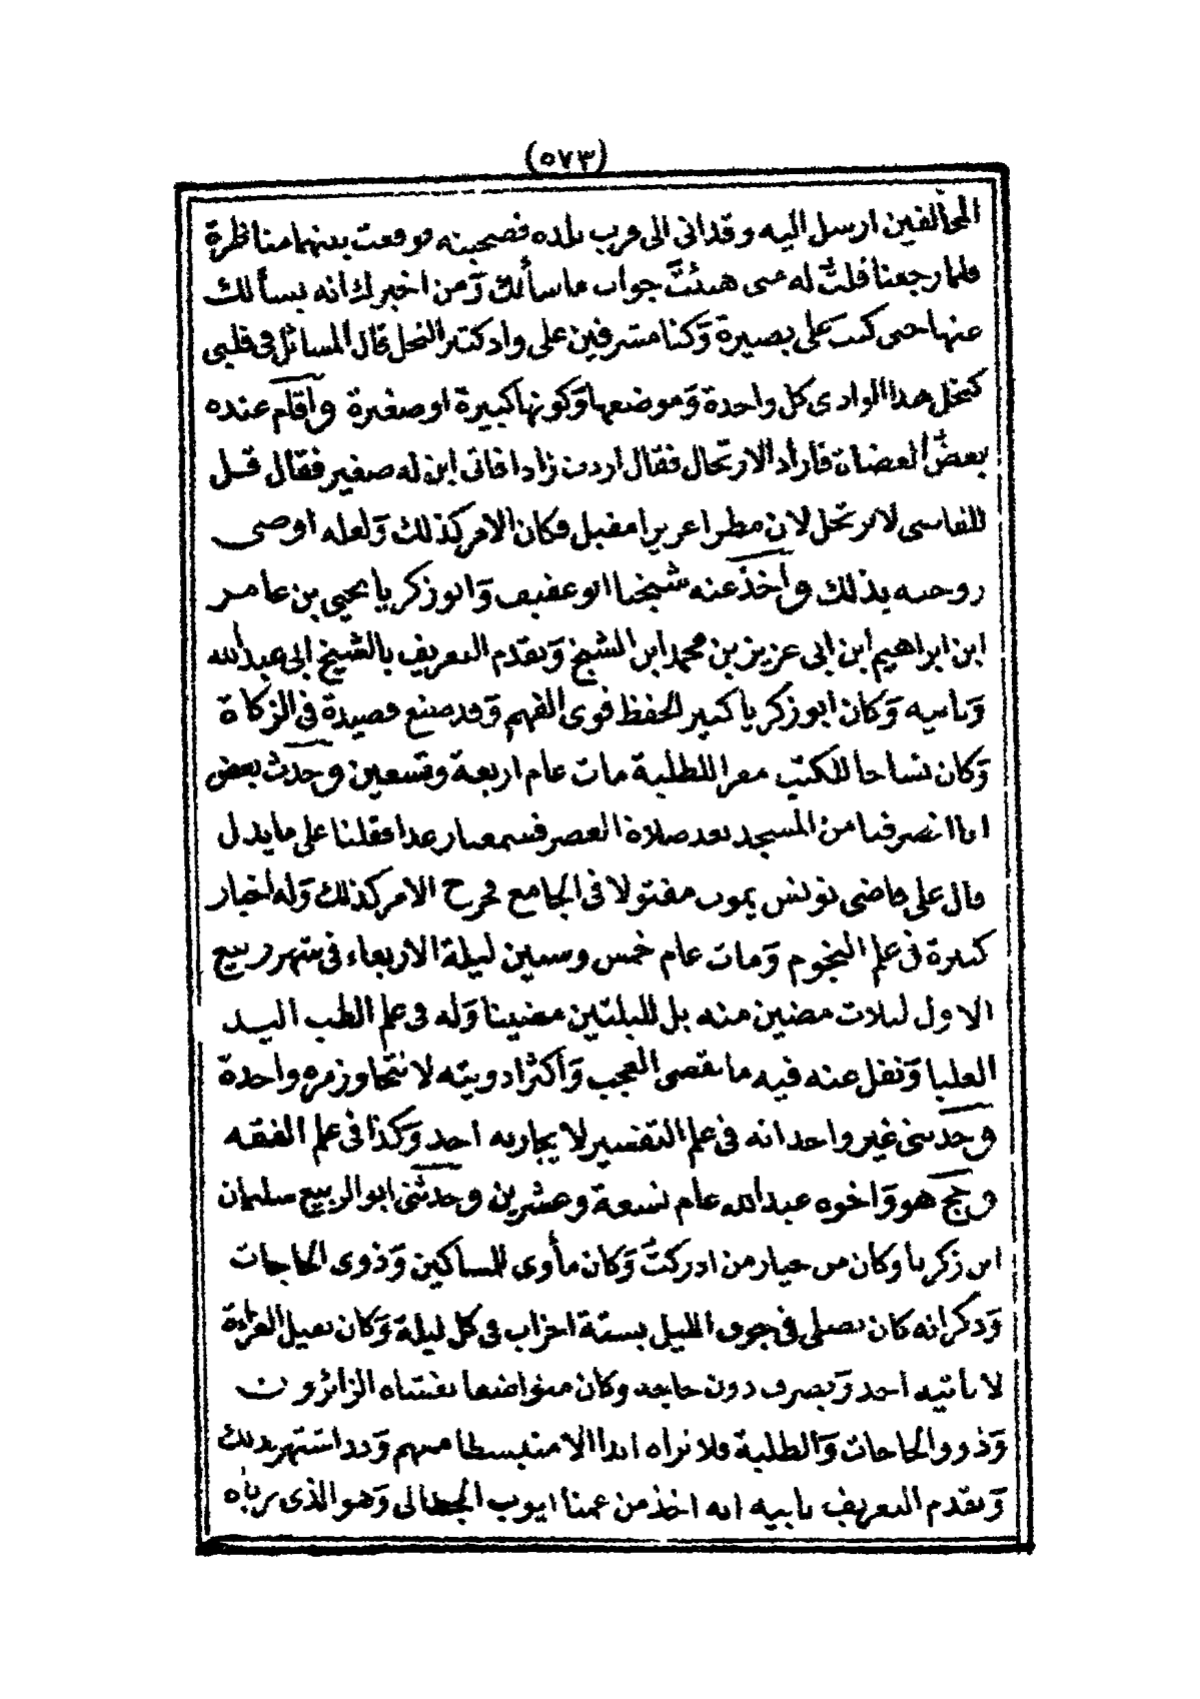 (٥٧٣)
المخالفين ارسل اليه وقد اتى الى قرب بلده فصحبته فوقعت بينهما مناظرة
فلما رجعنا قلت له متى هيئت جواب ما سألك ومن اخبرك انه يسألك
عنها حتى كنت على بصيرة وكنا مشرفين على واد كثير النخل قال المسائل في قلبي
كنخل هذا الوادى كل واحدة وموضعها وكونها كبيرة او صغيرة واقام عنده
بعض فاراد الارتحال فقال اردت زادا فاتى ابن له صغير فقال قـل
لا ترتحل لان مطرا غزيرا مقبل فكان الامر كذلك ولعله اوصى
زوجته بذلك واخذ عنه شيخنا ابو عفيف وابو زكرياء يحيى بن عامـر
ابن ابراهيم ابن ابى عزيز بن محمد ابن الشيخ وتقدم التعريف بالشيخ ابى عبد الله
وبابيه وكان ابو زكرياء كثير الحفظ قوى الفهم وقد صنع قصيدة في الزكاة
وكان نساخا للكتب مقرا للطلبة مات عام اربعة وتسعين وحدث بعض
انا انصرفنا من المسجد بعد صلاة العصر فسمعنا رعدا فقلنا على ما يدل
قال على قاضى تونس يموت مقتولا فى الجامع فخرج الامر كذلك وله اخبار
كثيرة فى علم النجوم ومات عام خمس وستين ليلة الاربعاء فى شهر ربيع
الاول لثلاث مضين منه بل لليلتين مضيتا وله فى علم الطب اليـد
العليا ونقل عنه فيه ما تقضى العجب واكثر ادويته لا تتجاوز مرة واحدة
وحدثنى غير واحد انه فى علم التفسير لا يجاريه احد وكذا فى علم الفقـه
وحج هو واخوه عبد الله عام تسعة وعشرين وحدثنى ابو الربيع سليمان
ابن زكرياء وكان من خيار من ادركت وكان مأوى للمساكين وذوى الحاجات
وذكر انه كان يصلى فى جوف الليل بستة احزاب فى كل ليلة وكان ثقيل القراءة
لا يأتيه احد ويصرف دون حاجة وكان متواضعا تغشاه الزائرون
وذوو الحاجات والطلبة فلا تراه ابدا الا منبسطا معهم وقد اشتهر بذلك
وتقدم التعريف بابيه انه اخذ من عمنا ايوب الجيطالى وهو الذى رباه